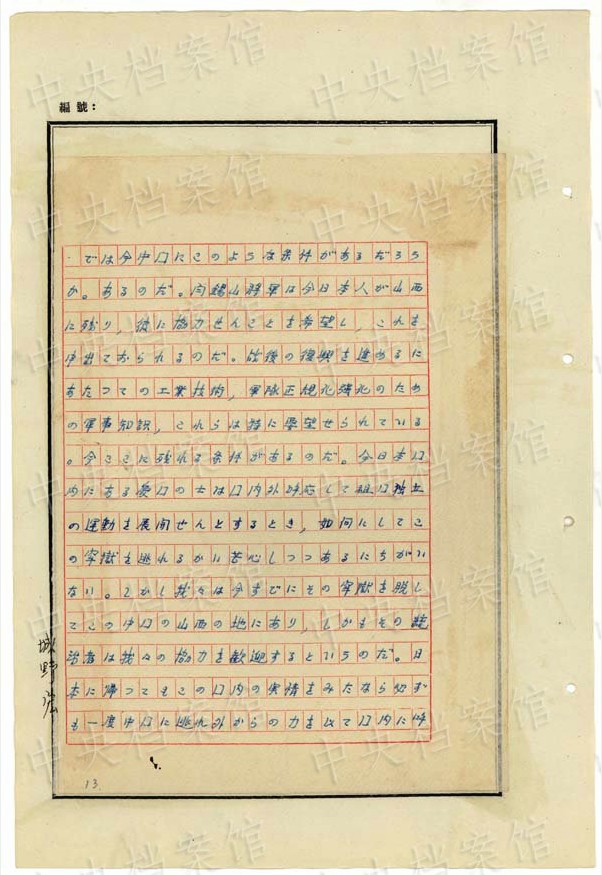 編號：
・では今中囗にこのような条件があるだろう
か。あるのだ。閻錫山将軍は今日本人が山西
に残り，彼に協力せんことを希望し，これを
申出ておられるのだ。戦後の復興を進めるに
あたつての工業技術，軍隊正規化強化のため
の軍事知識，これらは特に要望せられている
。今ここに残れる条件があるのだ。今日本囗
内にある愛囗の士は囗内外呼応して祖囗独立
の運動を展開せんとするとき，如何にしてこ
の牢獄を逃れるかに苦心しつつあるにちがい
ない。しかし我々は今すでにその牢獄を脱し
てこの中囗の山西の地にあり，しかもその統
治者は我々の協力を歓迎するというのだ。日
本に帰つてもこの囗内の実情をみたなら必ず
も一度中囗に逃れ外からの力を以て囗内に呼
城野宏
13.
中央档案馆